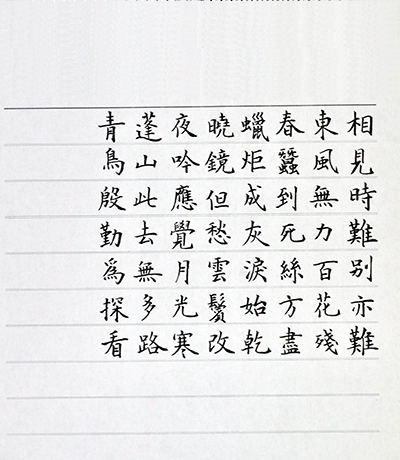 相見時難别亦難
東風無力百花殘
春蠶到死絲方盡
蠟炬成灰淚始乾
曉鏡但愁雲鬢改
夜吟應覺月光寒
蓬山此去無多路
青鳥殷勤爲探看